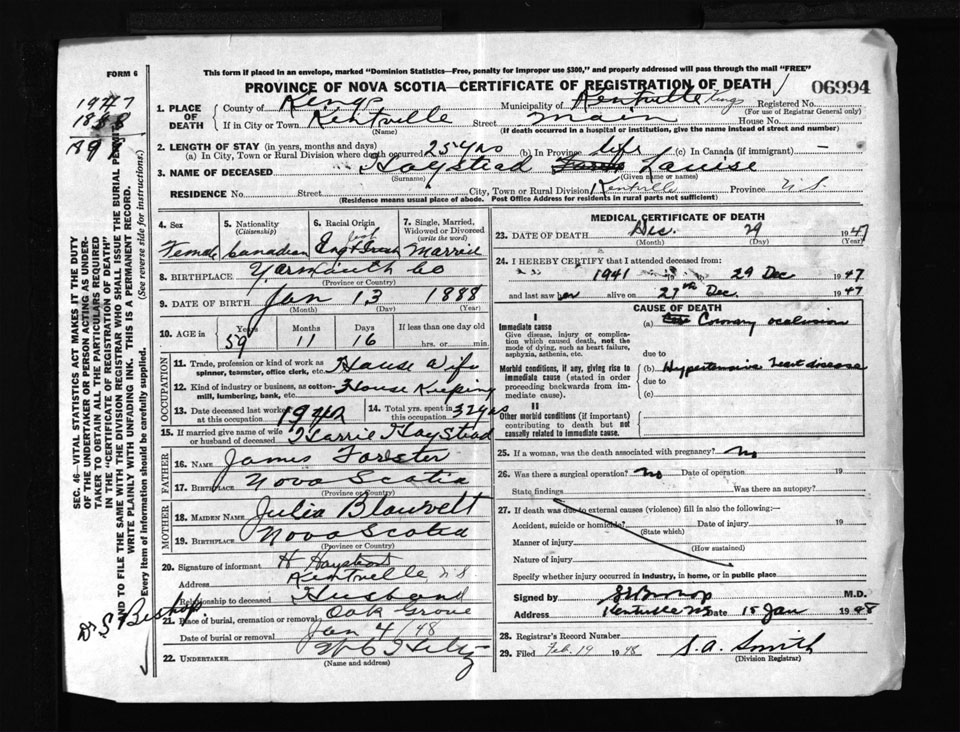 FORM 6
This form if placed in an envelope, marked "Dominion Statistics—Free, penalty for improper use $300," and properly addressed will pass through the mail "FREE"
PROVINCE OF NOVA SCOTIA—CERTIFICATE OF REGISTRATION OF DEATH
06994
1947
1888
1. PLACE OF DEATH
County of Kings Municipality of Kentville Kings Registered No.
(For use of Registrar General only)
If in City or Town Kentville Street Main House No.
(Name) (If death occurred in a hospital or institution, give the name instead of street and number)
2. LENGTH OF STAY (in years, months and days)
(a) In City, Town or Rural Division where death occurred 25 yrs (b) In Province life (c) In Canada (if immigrant) —
3. NAME OF DECEASED Haystead Louise
(Surname) (Given name or names)
RESIDENCE No. Street City, Town or Rural Division Kentville Province N.S.
(Residence means usual place of abode. Post Office Address for residents in rural parts not sufficient)
4. Sex Female
5. Nationality (Citizenship) Canadian
6. Racial Origin Eng & Irish
7. Single, Married, Widowed or Divorced (write the word) Married
8. BIRTHPLACE Yarmouth Co
(Province or Country)
9. DATE OF BIRTH Jan 13 1888
(Month) (Day) (Year)
10. AGE in Years Months Days If less than one day old
59 11 16 hrs. or min.
OCCUPATION
11. Trade, profession or kind of work as spinner, teamster, office clerk, etc. House Wife
12. Kind of industry or business, as cotton-mill, lumbering, bank, etc. House Keeping
13. Date deceased last worked at this occupation
14. Total yrs. spent in this occupation 32 yrs
15. If married give name of wife or husband of deceased Harrie Haystead
FATHER
16. NAME James Forster
17. BIRTHPLACE Nova Scotia
(Province or Country)
MOTHER
18. MAIDEN NAME Julia Blauvelt
19. BIRTHPLACE Nova Scotia
(Province or Country)
20. Signature of informant H Haystead
Address Kentville, N S
Relationship to deceased Husband
21. Place of burial, cremation or removal Oak Grove
Date of burial or removal Jan 4/48
22. UNDERTAKER
(Name and address)
MEDICAL CERTIFICATE OF DEATH
23. DATE OF DEATH Dec. 29 1947
(Month) (Day) (Year)
24. I HEREBY CERTIFY that I attended deceased from:
1941 to 29 Dec 1947
and last saw her alive on 27th Dec. 1947
CAUSE OF DEATH
I
Immediate cause
Give disease, injury or complication which caused death, not the mode of dying, such as heart failure, asphyxia, asthenia, etc.
(a) Coronary occlusion
due to
Morbid conditions, if any, giving rise to immediate cause (stated in order proceeding backwards from immediate cause).
(b) Hypertensive heart disease
due to
(c)
II
Other morbid conditions (if important) contributing to death but not causally related to immediate cause.
25. If a woman, was the death associated with pregnancy? No
26. Was there a surgical operation? No Date of operation 19
State findings Was there an autopsy?
27. If death was due to external causes (violence) fill in also the following:—
Accident, suicide or homicide? Date of injury 19
(State which)
Manner of injury
(How sustained)
Nature of injury
Specify whether injury occurred in industry, in home, or in public place
Signed by S Bishop M.D.
Address Kentville NS Date 15 Jan 1948
28. Registrar's Record Number
29. Filed Feb. 19 1948 S. A. Smith
(Division Registrar)
SEC. 46—VITAL STATISTICS ACT MAKES IT THE DUTY
OF THE UNDERTAKER OR PERSON ACTING AS UNDER-
TAKER TO OBTAIN ALL THE PARTICULARS REQUIRED
IN THE "CERTIFICATE OF REGISTRATION OF DEATH"
AND TO FILE THE SAME WITH THE DIVISION REGISTRAR WHO SHALL ISSUE THE BURIAL PERMIT.
WRITE PLAINLY WITH UNFADING INK. THIS IS A PERMANENT RECORD.
Every item of information should be carefully supplied. (See reverse side for instructions.)
Dr S Bishop.